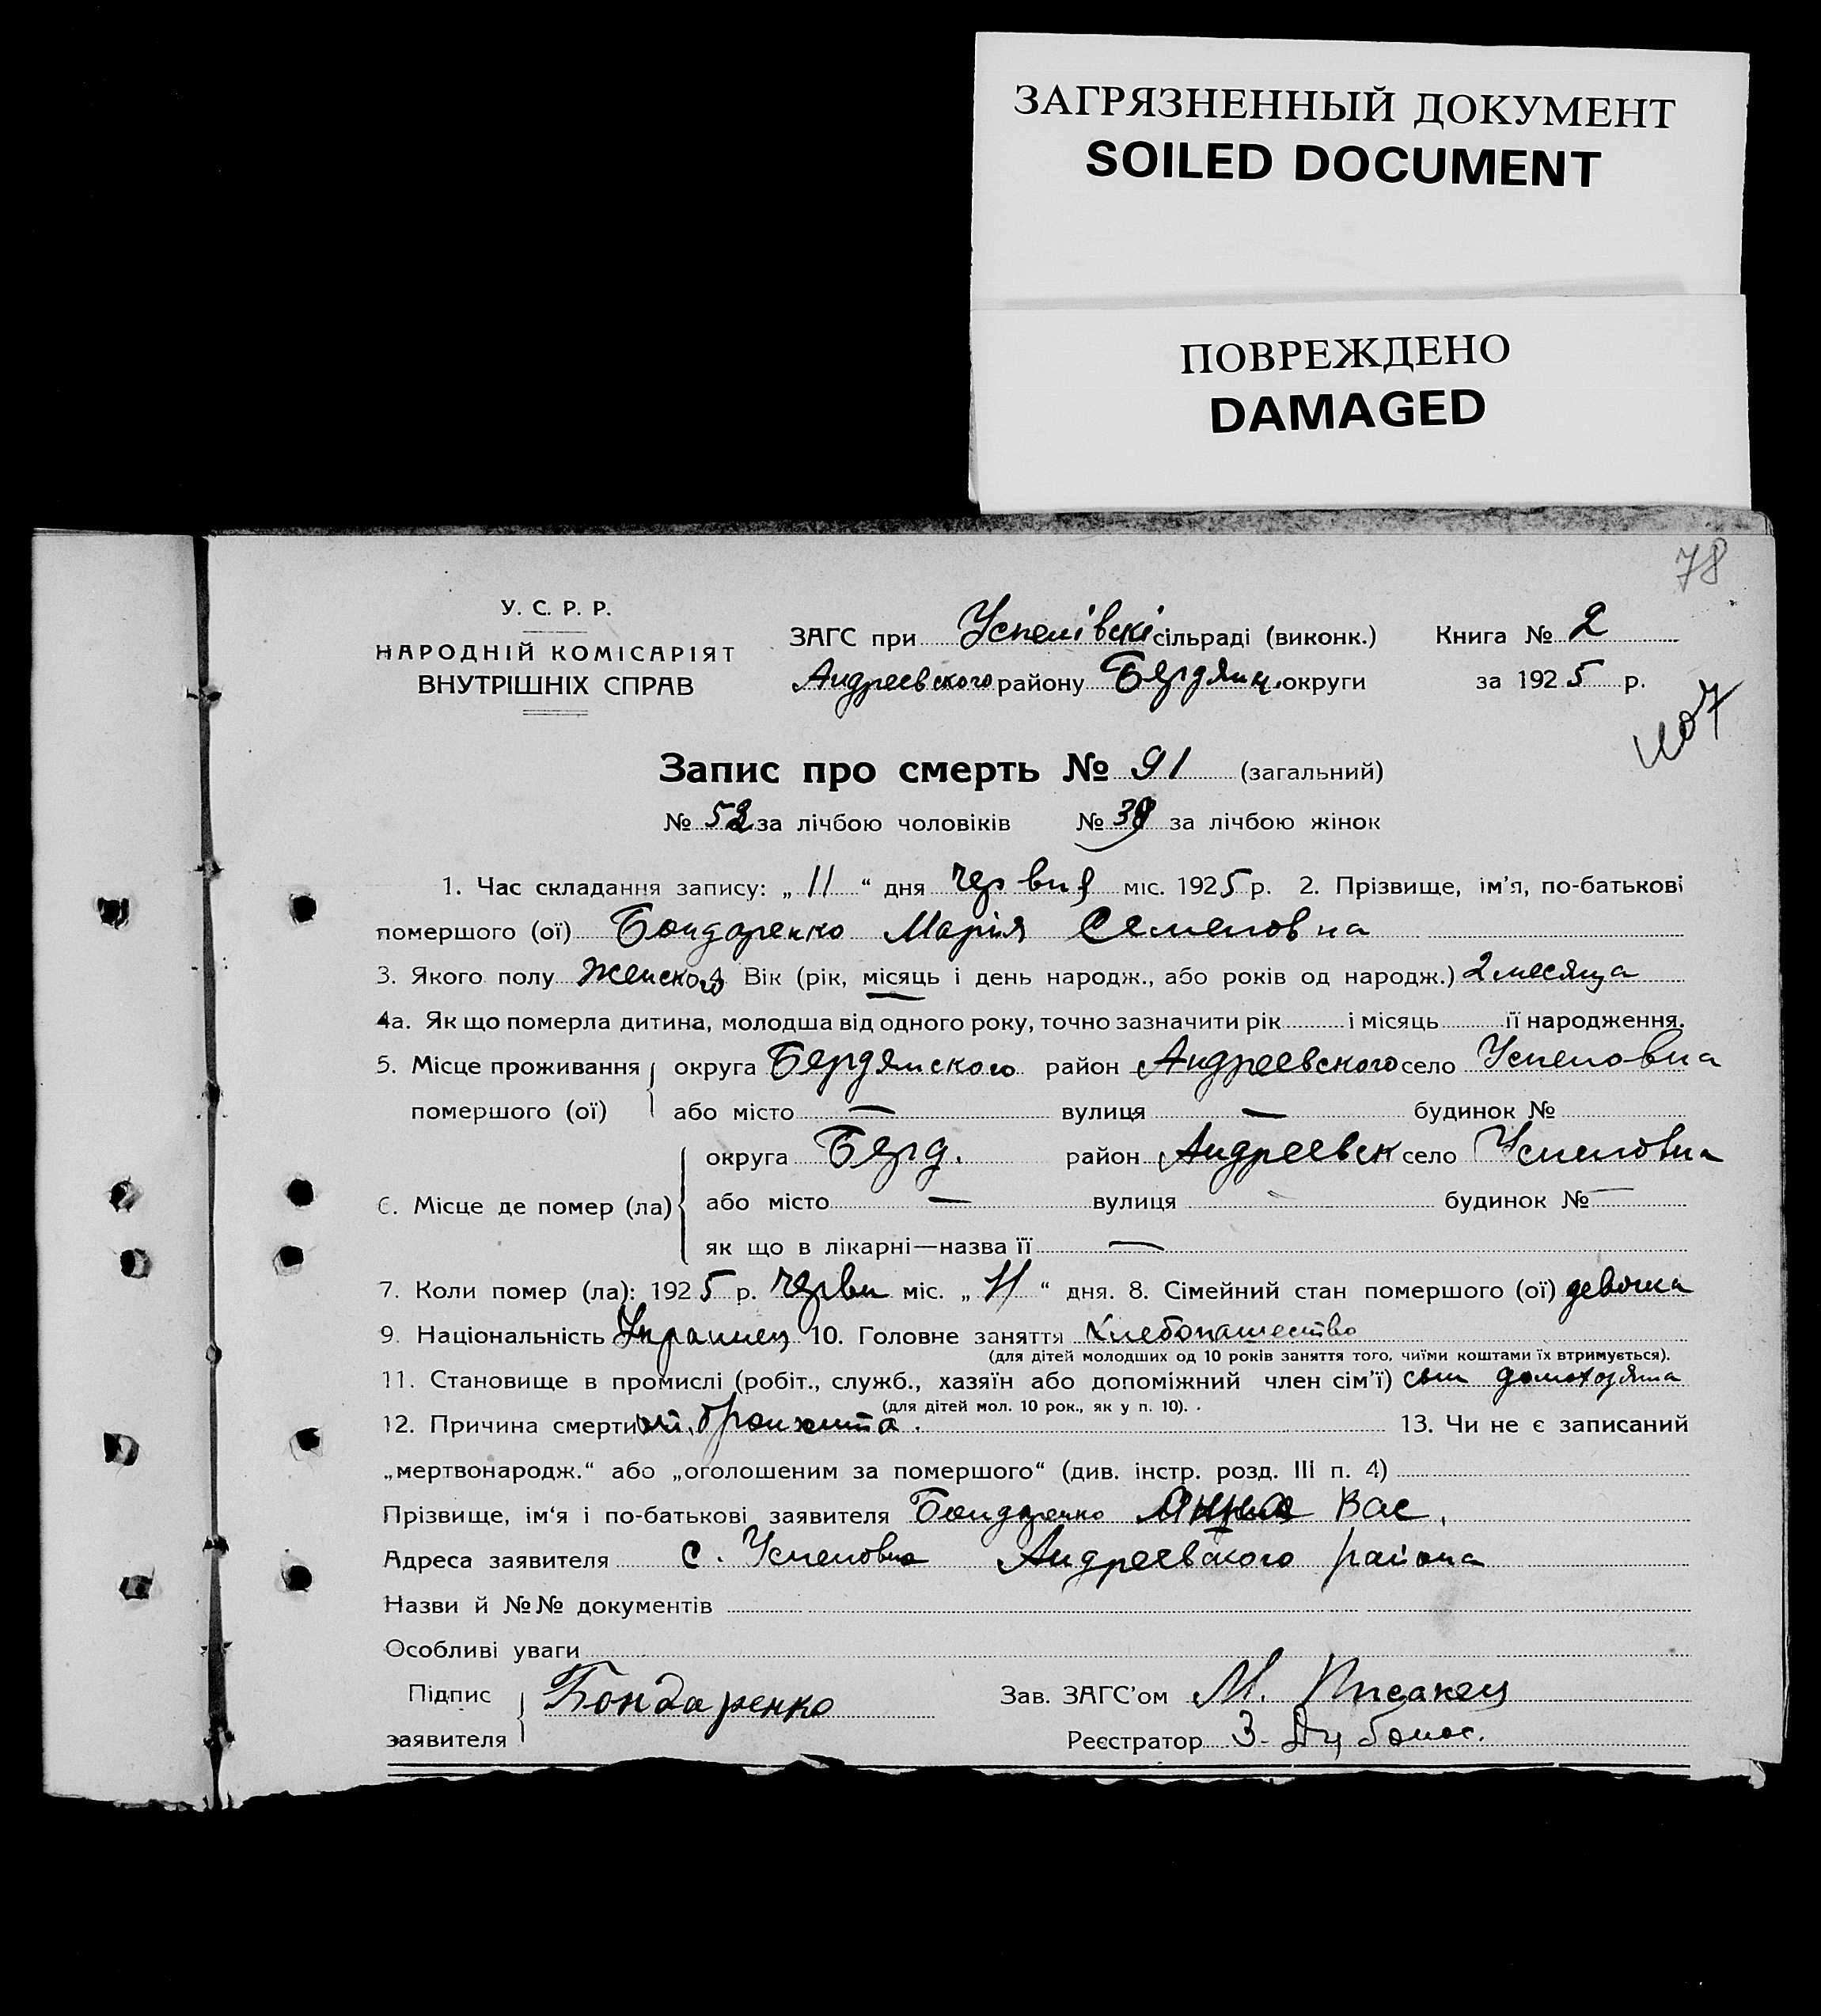 ЗАГРЯЗНЕННЫЙ ДОКУМЕНТ
SOILED DOCUMENT
ПОВРЕЖДЕНО
DAMAGED
78
У. С. Р. Р.
НАРОДНІЙ КОМІСАРІЯТ
ВНУТРІШНІХ СПРАВ
ЗАГС при Успенівскі сільраді (виконк.) Книга № 2
Андреевского району Бердянц. округи за 1925 р.
Запис про смерть № 91 (загальний)
№ 52 за лічбою чоловіків № 39 за лічбою жінок
1. Час складання запису: „ 11 “ дня червня міс. 1925 р. 2. Прізвище, ім'я, по-батькові
помершого (ої) Бондаренко Марія Семеновна
3. Якого полу Женского 4. Вік (рік, місяць і день народж., або років од народж.) 2 месяца
4а. Як що померла дитина, молодша від одного року, точно зазначити рік і місяць її народження.
5. Місце проживання округа Бердянского район Андреевского село Успеновка
помершого (ої) або місто — вулиця — будинок №
округа Берд. район Андреевск село Успеновка
6. Місце де помер (ла) або місто — вулиця будинок № —
як що в лікарні—назва її —
7. Коли помер (ла): 1925 р. черви міс. „ 11 “ дня. 8. Сімейний стан помершого (ої) девочка
9. Національність Украинец 10. Головне заняття Хлебопашество
(для дітей молодших од 10 років заняття того, чиїми коштами їх втримується).
11. Становище в промислі (робіт., служб., хазяїн або допоміжний член сім'ї) сын домохозяина
(для дітей мол. 10 рок., як у п. 10).
12. Причина смерти от бронхита. 13. Чи не є записаний
„мертвонародж.“ або „оголошеним за помершого“ (див. інстр. розд. III п. 4)
Прізвище, ім'я і по-батькові заявителя Бондаренко Вас.
Адреса заявителя с. Успеновка Андреевского района
Назви й №№ документів
Особливі уваги
Підпис Бондаренко Зав. ЗАГС'ом М. Писанец
заявителя Реєстратор З.